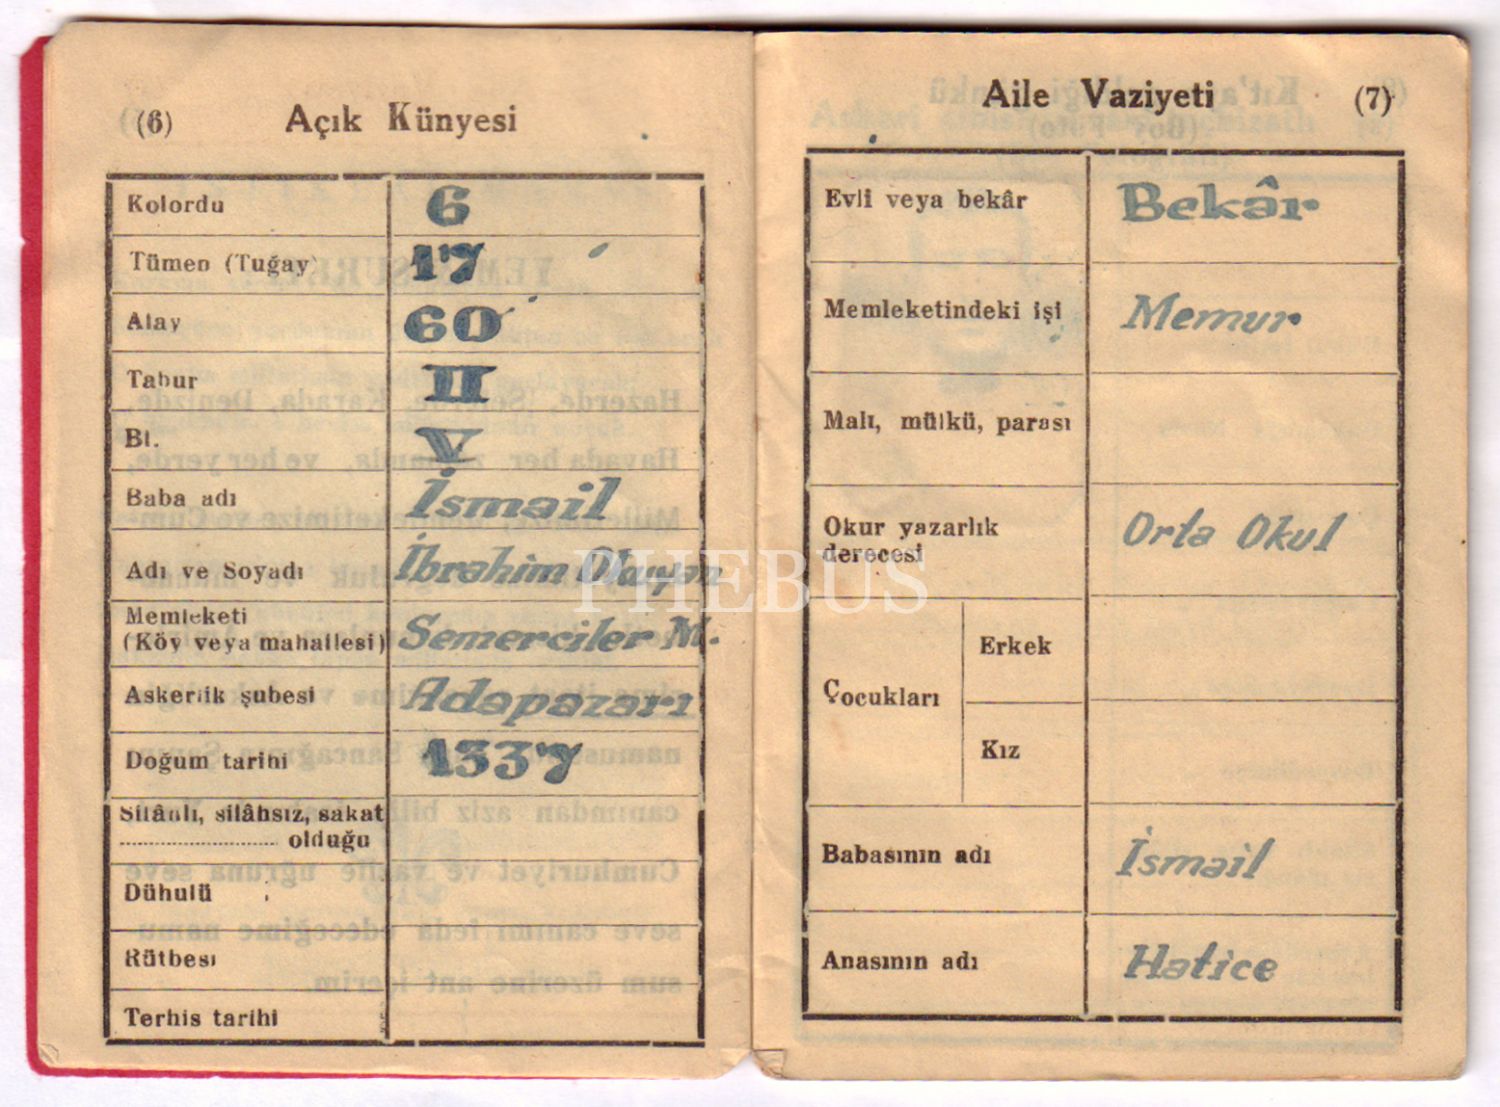 (6) Açık Künyesi
Kolordu 6
Tümen (Tuğay) 17
Alay 60
Tabur II
Bl. V
Baba adı İsmail
Adı ve Soyadı İbrahim
Memleketi
(Köy veya mahallesi) Semerciler M.
Askerlik şubesi Adapazarı
Doğum tarihi 1337
Silâhlı, silâhsız, sakat
olduğu
Dühulü
Rütbesi
Terhis tarihi
Aile Vaziyeti (7)
Evli veya bekâr Bekâr
Memleketindeki işi Memur
Malı, mülkü, parası
Okur yazarlık
derecesi Orta Okul
Çocukları
Erkek
Kız
Babasının adı İsmail
Anasının adı Hatice
PHEBUS